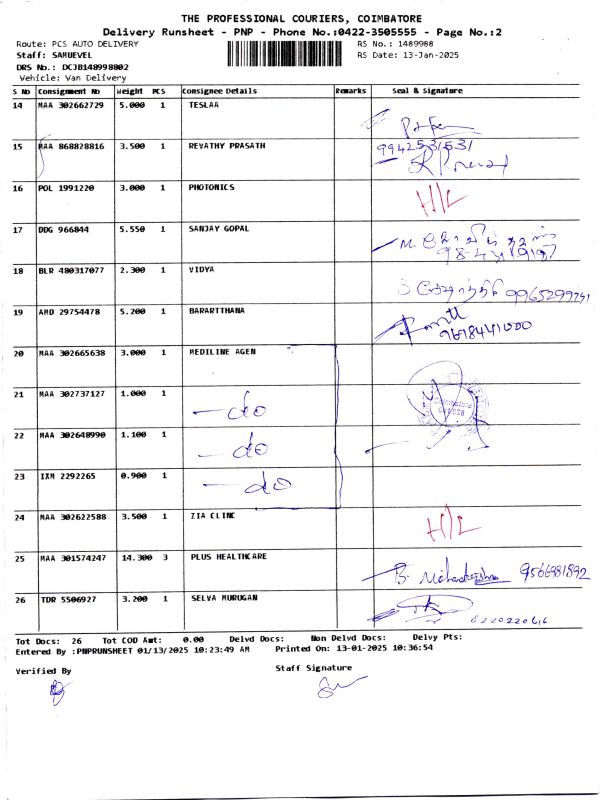 THE PROFESSIONAL COURIERS, COIMBATORE
Delivery Runsheet - PNP - Phone No.:0422-3505555 - Page No.:2
Route: PCS AUTO DELIVERY RS No.: 1489988
Staff: SAMUEVEL RS Date: 13-Jan-2025
DRS No.: DCJB148998802
Vehicle: Van Delivery
S No Consignment No Weight PCS Consignee Details Remarks Seal & Signature
14 MAA 302662729 5.000 1 TESLAA
15 MAA 868828816 3.500 1 REVATHY PRASATH 9942531531
16 POL 1991220 3.000 1 PHOTONICS H/L
17 DDG 966844 5.550 1 SANJAY GOPAL
18 BLR 480317077 2.300 1 VIDYA 9965299741
19 AMD 29754478 5.200 1 BARARTTHANA 9698441000
20 MAA 302665638 3.000 1 MEDILINE AGEN
21 MAA 302737127 1.000 1 -do
22 MAA 302648990 1.100 1 -do
23 IXM 2292265 0.900 1 -do
24 MAA 302622588 3.500 1 ZIA CLINC H/L
25 MAA 301574247 14.300 3 PLUS HEALTHCARE 9566981892
26 TDR 5506927 3.200 1 SELVA MURUGAN
Tot Docs: 26 Tot COD Amt: 0.00 Delvd Docs: Non Delvd Docs: Delvy Pts:
Entered By :PNPRUNSHEET 01/13/2025 10:23:49 AM Printed On: 13-01-2025 10:36:54
Verified By Staff Signature